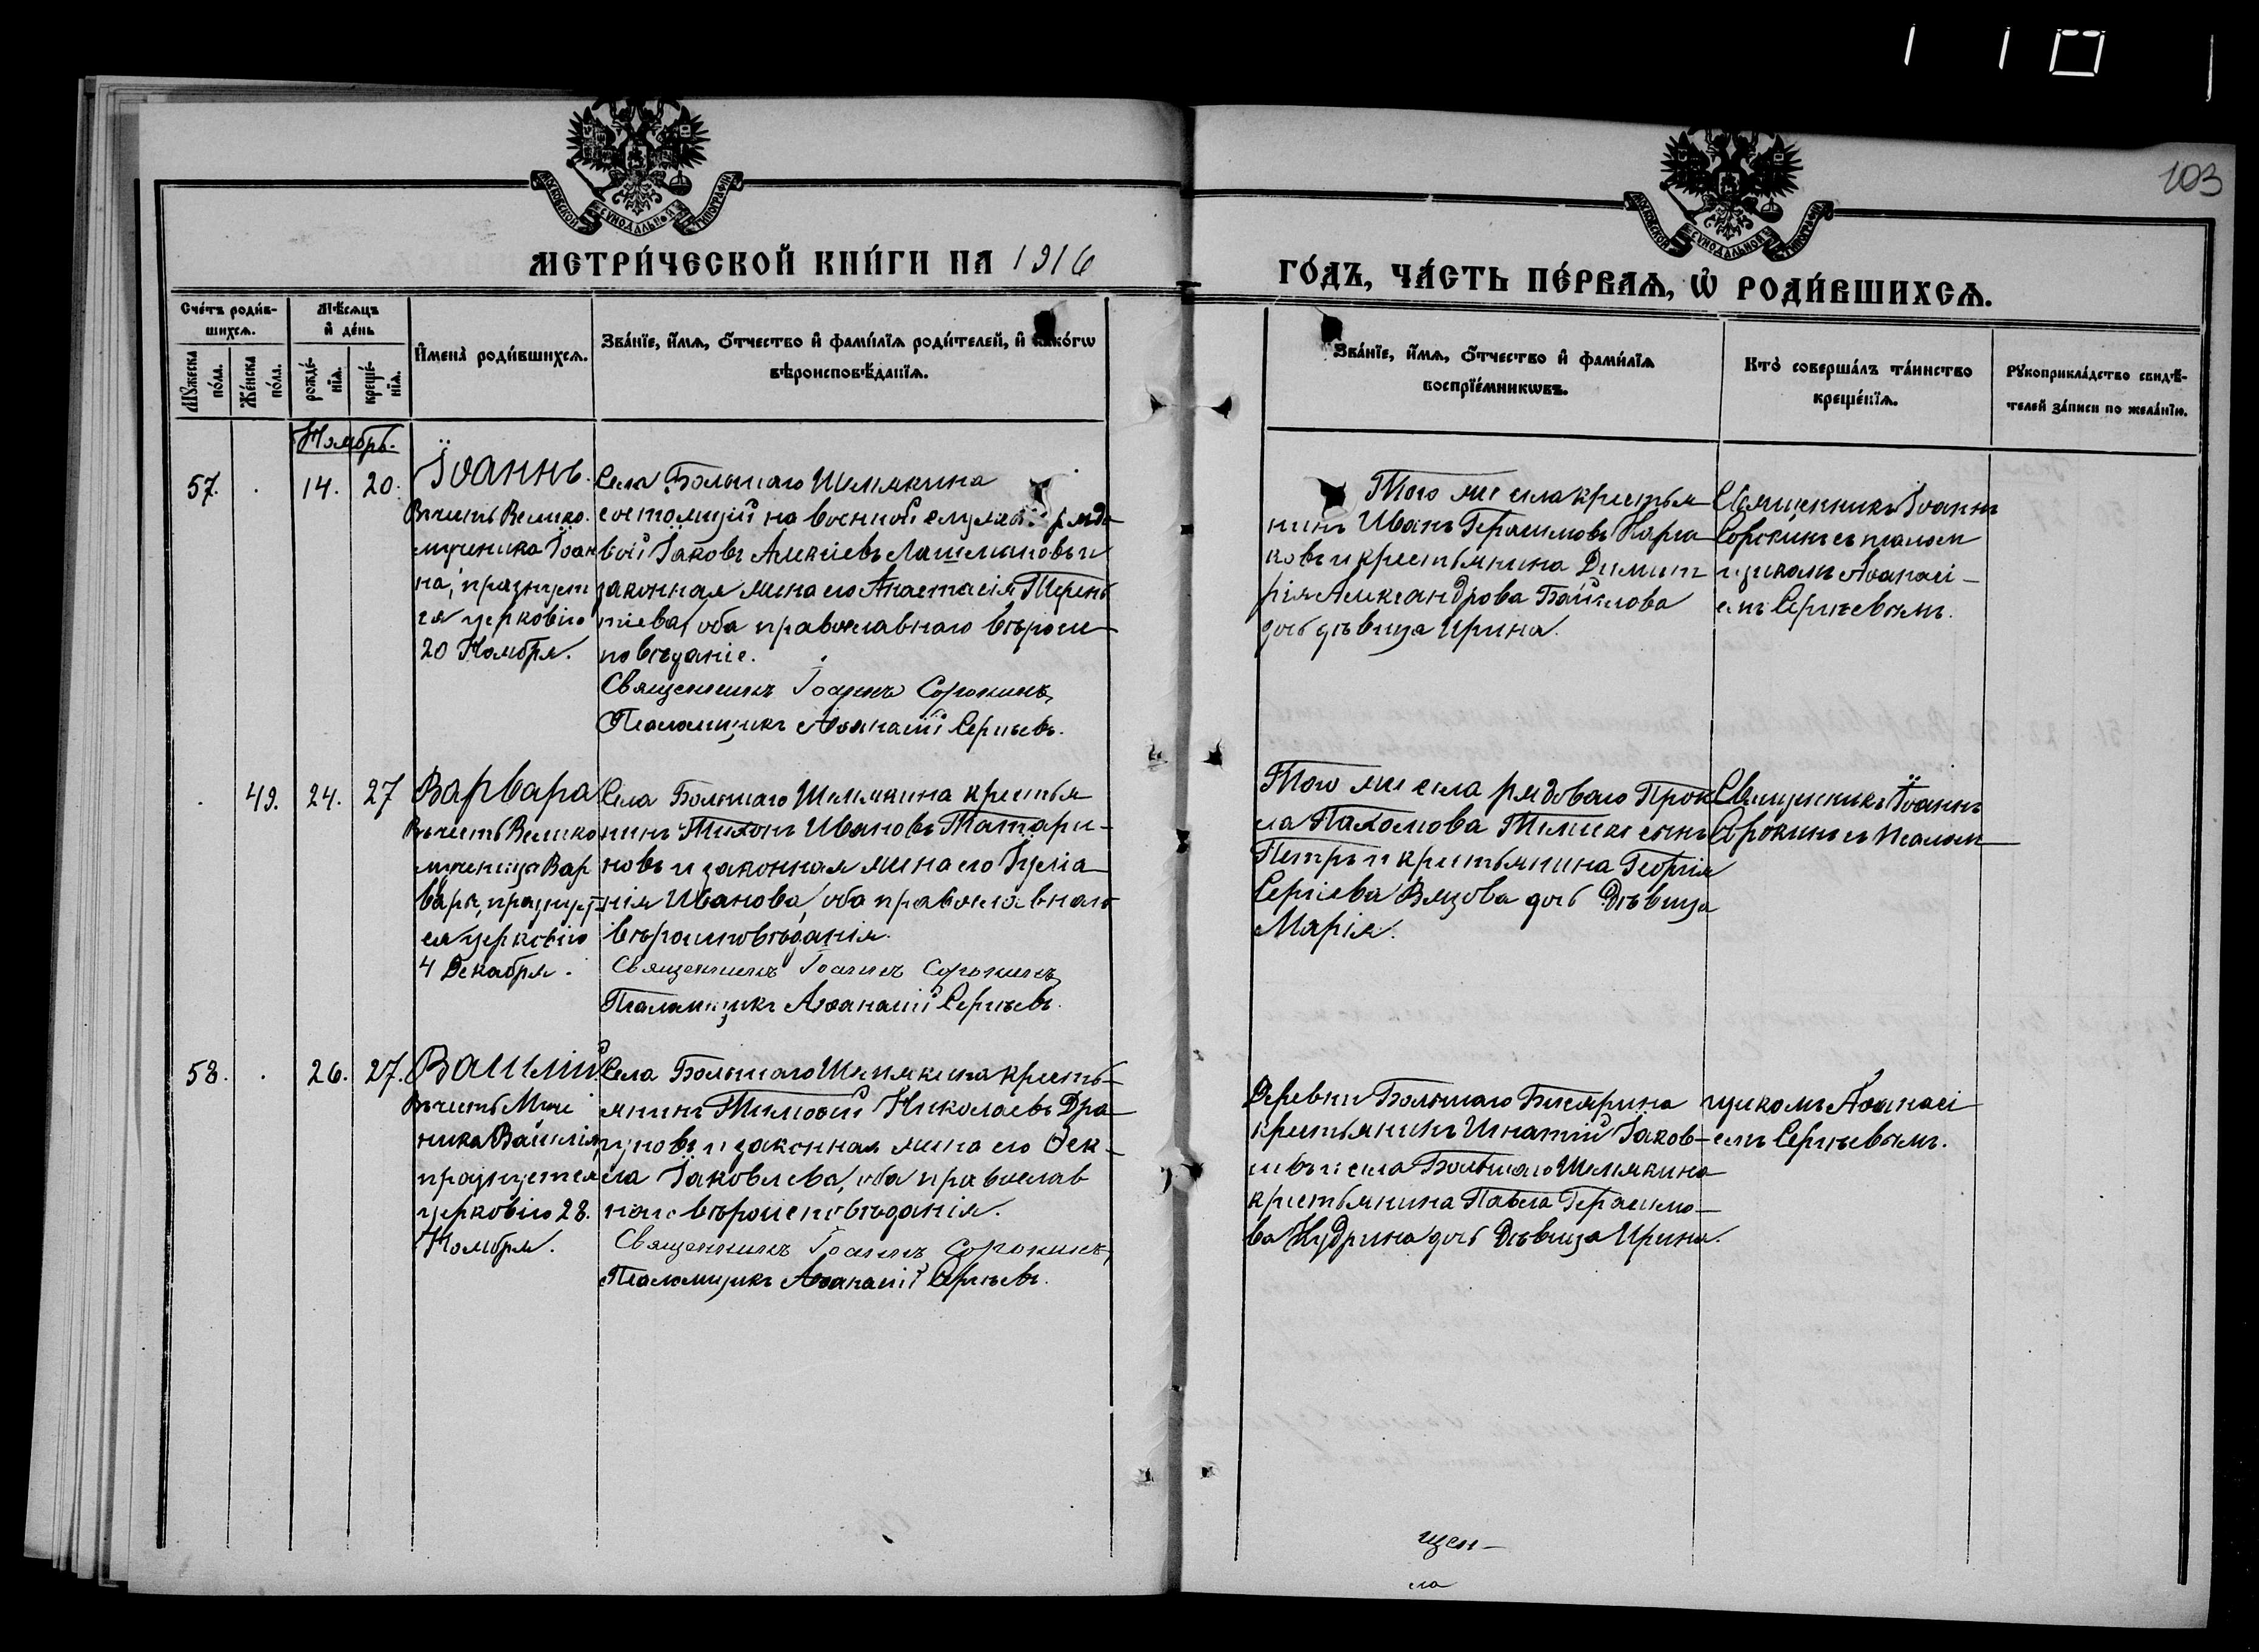 103
МОСКОВСКОЙ СУНОДАЛЬНОЙ ТИПОГРАФІИ
МОСКОВСКОЙ СУНОДАЛЬНОЙ ТИПОГРАФІИ
МЕТРИ́ЧЕСКОЙ КНИ́ГИ НА 1916
ГО́ДЪ, ЧА́СТЬ ПЕ́РВАѦ, Ѡ҆ РОДИ́ВШИХСѦ.
Сче́тъ роди́в-
шихсѧ.
Мѣ́сѧцъ
и҆ де́нь
Мꙋ́жеска
по́ла.
Же́нска
по́ла.
рожде́-
нїѧ.
креще́-
нїѧ.
И҆мена̀ роди́вшихсѧ.
Зва́нїе, и҆́мѧ, ѻ҆́тчество и҆ фами́лїѧ роди́телей, и҆ како́гѡ
вѣроисповѣ́данїѧ.
Зва́нїе, и҆́мѧ, ѻ҆́тчество и҆ фами́лїѧ
воспрїе́мникѡвъ.
Кто̀ соверша́лъ та́инство
креще́нїѧ.
Рꙋкоприкла́дство свидѣ́-
телей за́писи по жела́нїю.
Ноябрь.
57. . 14. 20.
Іоаннъ.
Въ честь Велико-
мученика Іоан
на, празнует
ся церковію
20 Ноября.
Села Большаго Шемякина
состоящій на военной службѣ рядо-
вой Іаковъ Алексіевъ Лашмановъ и
законная жена его Анастасія Терень
тіева, оба православнаго вѣроис-
повѣданіе.
Священникъ Іоаннъ Сорокинъ,
Псаломщикъ Аѳанасій Сергѣевъ.
Того же села крестья-
нинъ Иванъ Герасимовъ
ковъ и крестьянина Димит
рія Александрова
дочь дѣвица Ирина.
Священникъ Іоаннъ
Сорокинъ съ псалом
щикомъ Аѳанасі-
емъ Сергѣевымъ.
. 49. 24. 27
Варвара
Въ честь Велико
мученицы Вар
вары, празднует-
ся церковію
4 Декабря.
Села Большаго Шемякина крестья
нинъ Тихонъ Ивановъ Татари-
новъ и законная жена его Іуліа-
нія Иванова, оба православнаго
вѣроисповѣданія.
Священникъ Іоаннъ Сорокинъ,
Псаломщикъ Аѳанасій Сергѣевъ.
Того же села рядоваго Прок
ла Пахомова сынъ
Петръ и крестьянина Георгія
Сергіева Вязова дочь Дѣвица
Марія.
Священникъ Іоаннъ
Сорокинъ съ Псалом-
58. . 26. 27.
Василій
Въ честь Муче
ника Василія,
празнуется
церковію 28.
Ноября.
Села Большаго Шемякина кресть-
янинъ Тимоѳей Николаевъ Дра-
гуновъ и законная жена его Ѳек-
ла Іаковлева, оба православ
наго вѣроисповѣданія.
Священникъ Іоаннъ Сорокинъ,
Псаломщикъ Аѳанасій Сергѣевъ.
Деревни Большаго Бисярина
крестьянинъ Игнатій Іаков-
левъ и села Большаго Шемякина
крестьянина Павла Герасимо-
ва Кудрина дочь Дѣвица Ирина.
щикомъ Аѳанасі-
емъ Сергѣевымъ.
щен-
ла